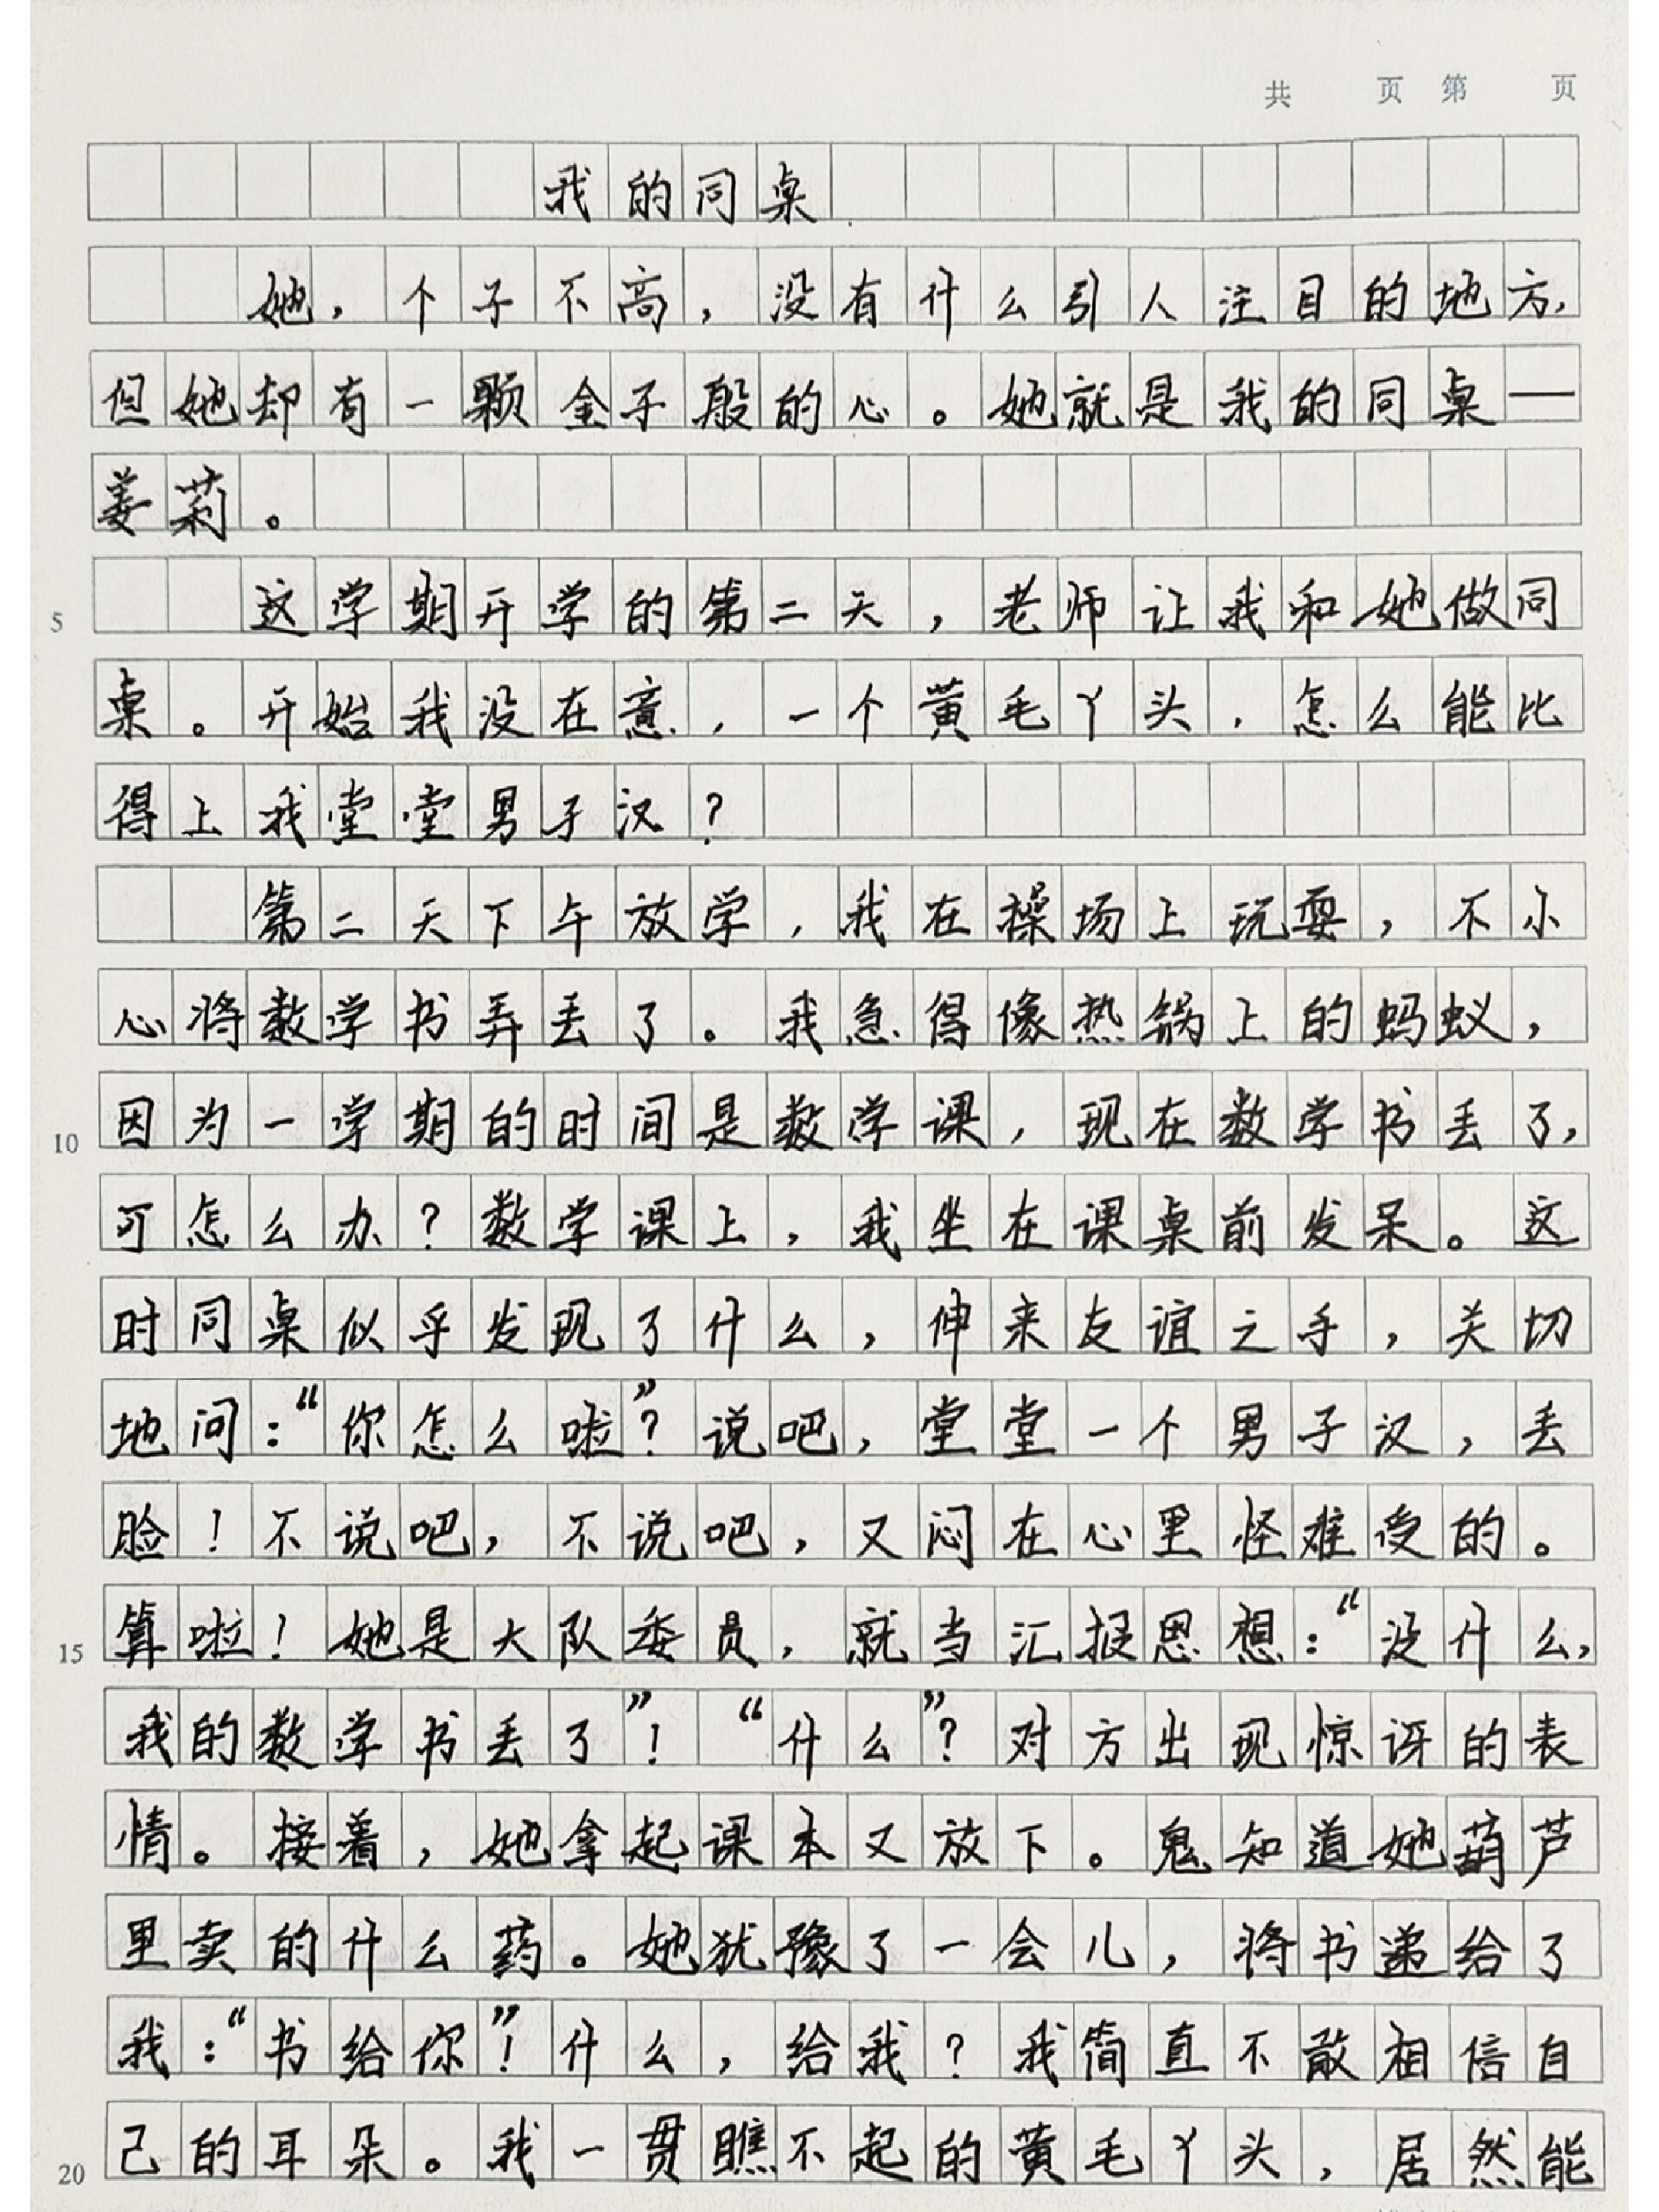 共 页 第 页
我的同桌
她，个子不高，没有什么引人注目的地方，
但她却有一颗金子般的心。她就是我的同桌—
姜莉。
5 这学期开学的第二天，老师让我和她做同
桌。开始我没在意，一个黄毛丫头，怎么能比
得上我堂堂男子汉？
第二天下午放学，我在操场上玩耍，不小
心将数学书弄丢了。我急得像热锅上的蚂蚁，
10 因为一学期的时间是数学课，现在数学书丢了，
可怎么办？数学课上，我坐在课桌前发呆。这
时同桌似乎发现了什么，伸来友谊之手，关切
地问：“你怎么啦”？说吧，堂堂一个男子汉，丢
脸！不说吧，不说吧，又闷在心里怪难受的。
15 算啦！她是大队委员，就当汇报思想：“没什么，
我的数学书丢了”！“什么”？对方出现惊讶的表
情。接着，她拿起课本又放下。鬼知道她葫芦
里卖的什么药。她犹豫了一会儿，将书递给了
我：“书给你”！什么，给我？我简直不敢相信自
20 己的耳朵。我一贯瞧不起的黄毛丫头，居然能